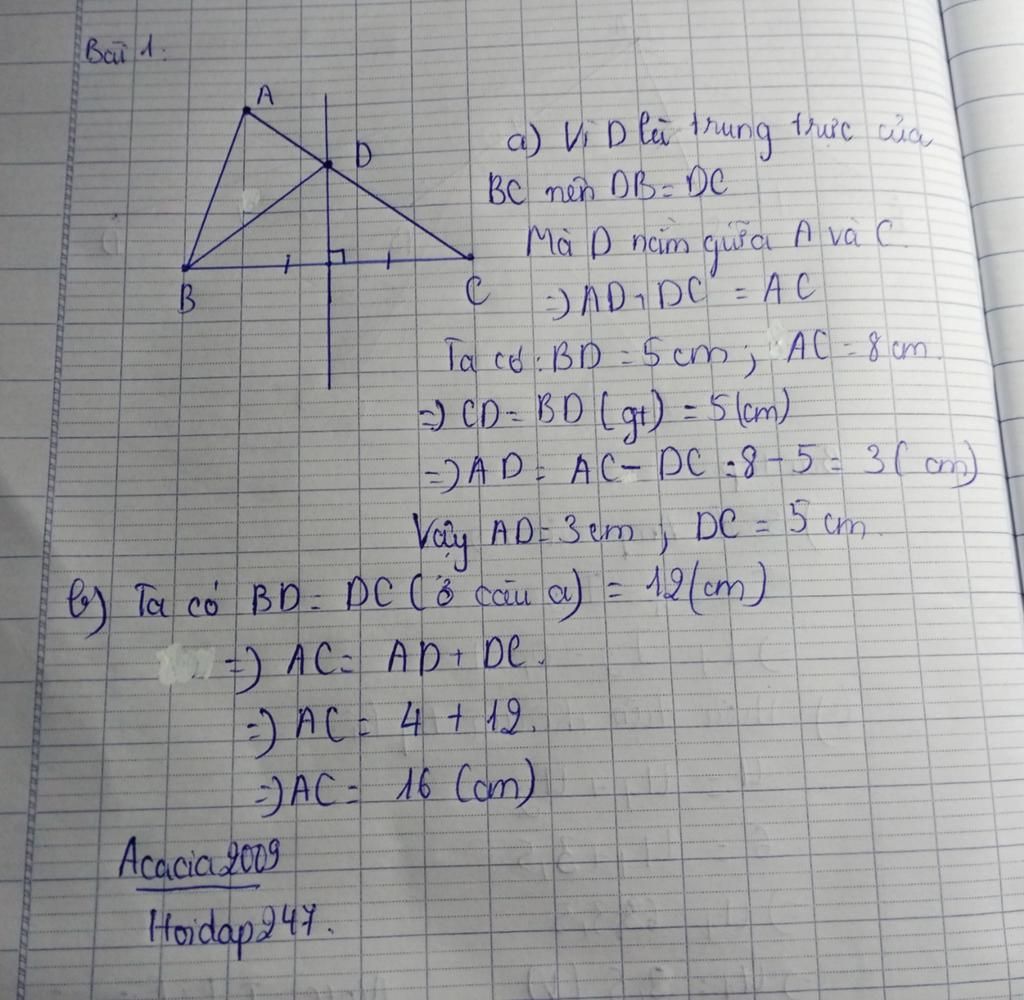 Bài 1:
A
D
B
C
a) Vì D là trung trực của
BC nên DB = DC
Mà D nằm giữa A và C.
=) AD + DC = AC
Ta có: BD = 5 cm; AC = 8 cm.
=) CD = BD (gt) = 5 (cm)
=) AD = AC - DC = 8 - 5 = 3 (cm)
Vậy AD = 3 cm, DC = 5 cm
b) Ta có BD = DC (ở câu a) = 12 (cm)
=) AC = AD + DC.
=) AC = 4 + 12.
=) AC = 16 (cm)
Acacia2009
Hoidap247.